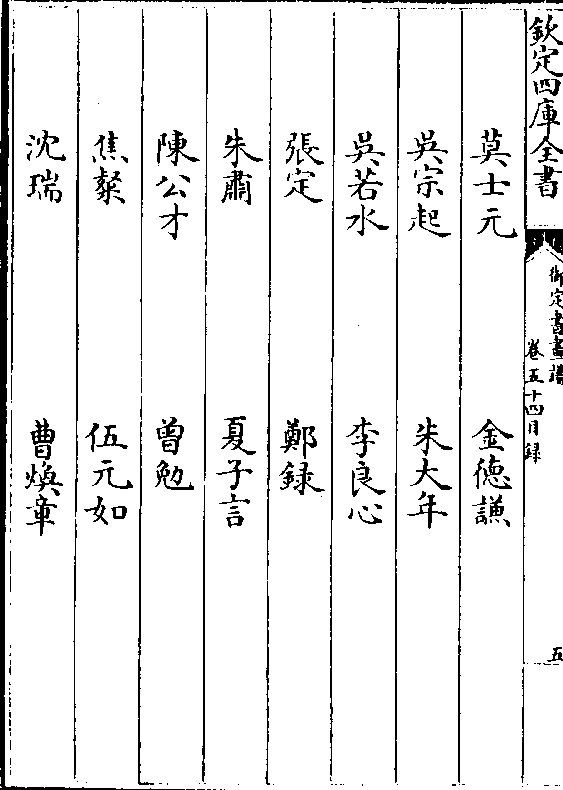 欽定四庫全書
御定書畫譜
卷五十四目録
五
莫士元　金德謙
吳宗起　朱大年
吳若水　李良心
張定　鄭録
朱肅　夏子言
陳公才　曾勉
焦粲　伍元如
沈瑞　曹煥章